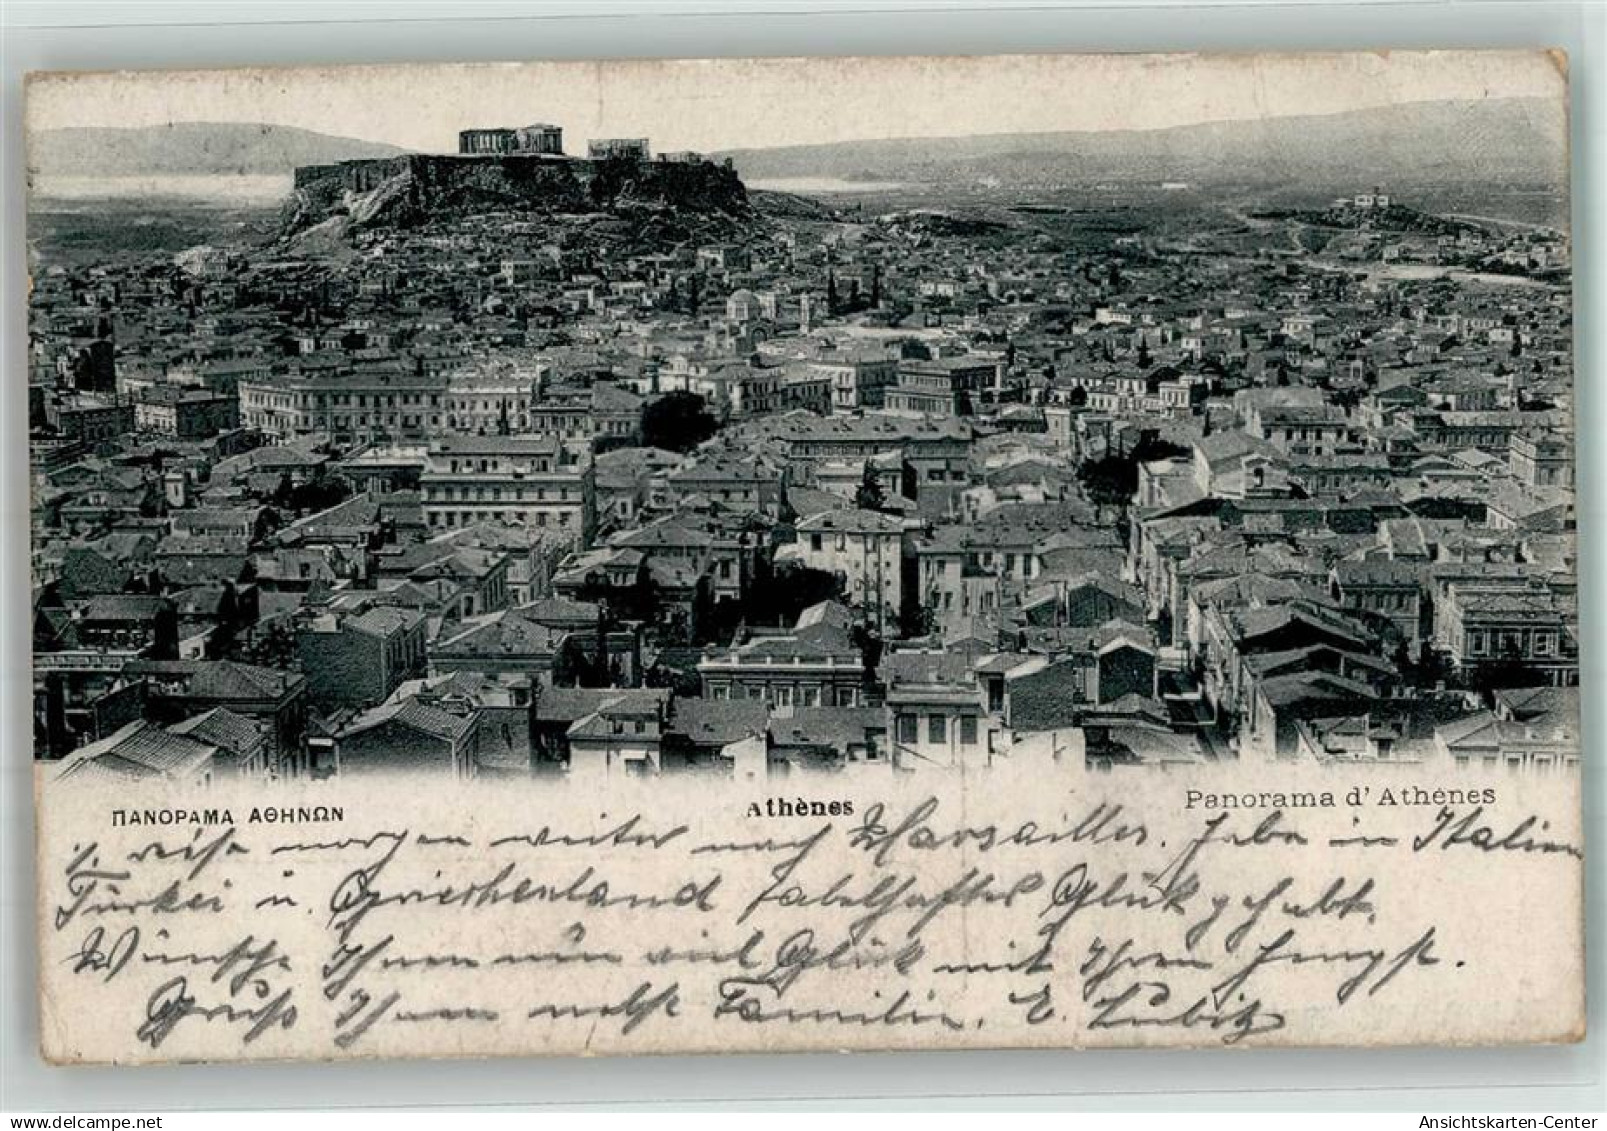 ΠΑΝΟΡΑΜΑ ΑΘΗΝΩΝ
Athènes
Panorama d'Athènes
reise morgen weiter nach Marsailles. Habe in Italien
Türkei u. Griechenland fabelhaftes Glück gehabt.
Wünsche Ihnen nun viel Glück mit Ihrem Hengst.
Gruß Ihnen nebst Familie. E. Lubitz
delcampe.net
Ansichtskarten-Center